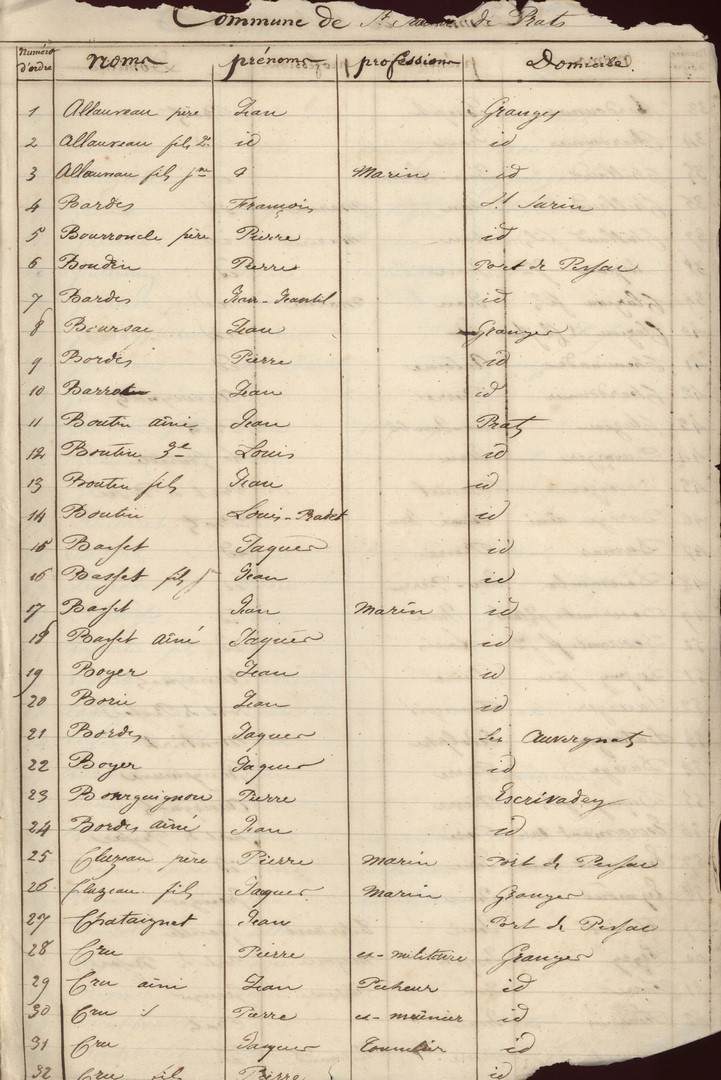 Commune de St Seurin de Prats
Numéros d'ordre noms prénoms professions Domicile
1 Allauveau père Jean Granges
2 Allauveau fils id id
3 Allauveau fils jne Marin id
4 Bardes François St Surin
5 Bourroncle père Pierre id
6 Boudin Pierre Port de Pessac
7 Bardes Jean-Jeantil id
8 Boursac Jean Granges
9 Bordes Pierre id
10 Jean id
11 Boutin aîné Jean Prats
12 Boutin 3e Louis id
13 Boutin fils Jean id
14 Boutin Louis-Badet id
15 Basset Jaques id
16 Basset fils Jean id
17 Basset Jean Marin id
18 Basset Aîné Jaques id
19 Boyer Jean id
20 Borie Jean id
21 Bordes Jaques Les Auvergnats
22 Boyer Jaques id
23 Bourguignon Pierre Escrivadey
24 Bordes aîné Jean id
25 Cluzeau père Pierre marin Port de Pessac
26 Cluzeau fils Jaques marin Granges
27 Chataignet Jean Port de Pessac
28 Cru Pierre ex-militaire Granges
29 Cru aîné Jean Pecheur id
30 Cru Pierre ex-meunier id
31 Cru Jaques id
32 Cru fils Pierre id